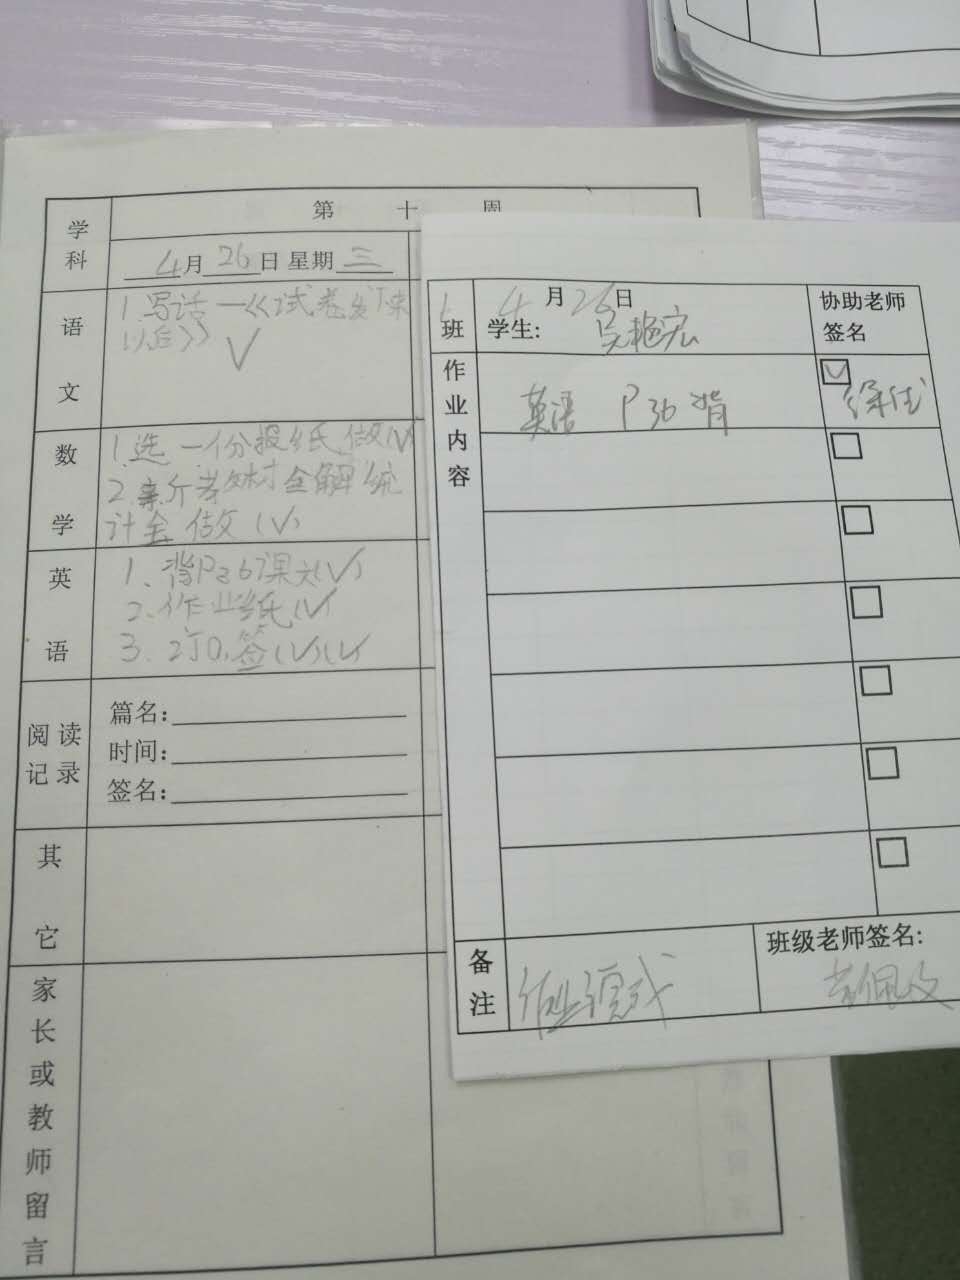 学科
第 十 周
4月26日 星期三
语文
1.写话一《试卷发下来
以后》
数学
1.选一份报纸做(√)
2.亲斤教材全解统
计全做(√)
英语
1、背P36课文(√)
2、作业纸(√)
3、订，签(√)(√)
阅读记录
篇名：
时间：
签名：
其它
家长或教师留言
班
4月26日
学生：吴艳宏
协助老师
签名
作业内容
英语 P36 背
备注
班级老师签名：